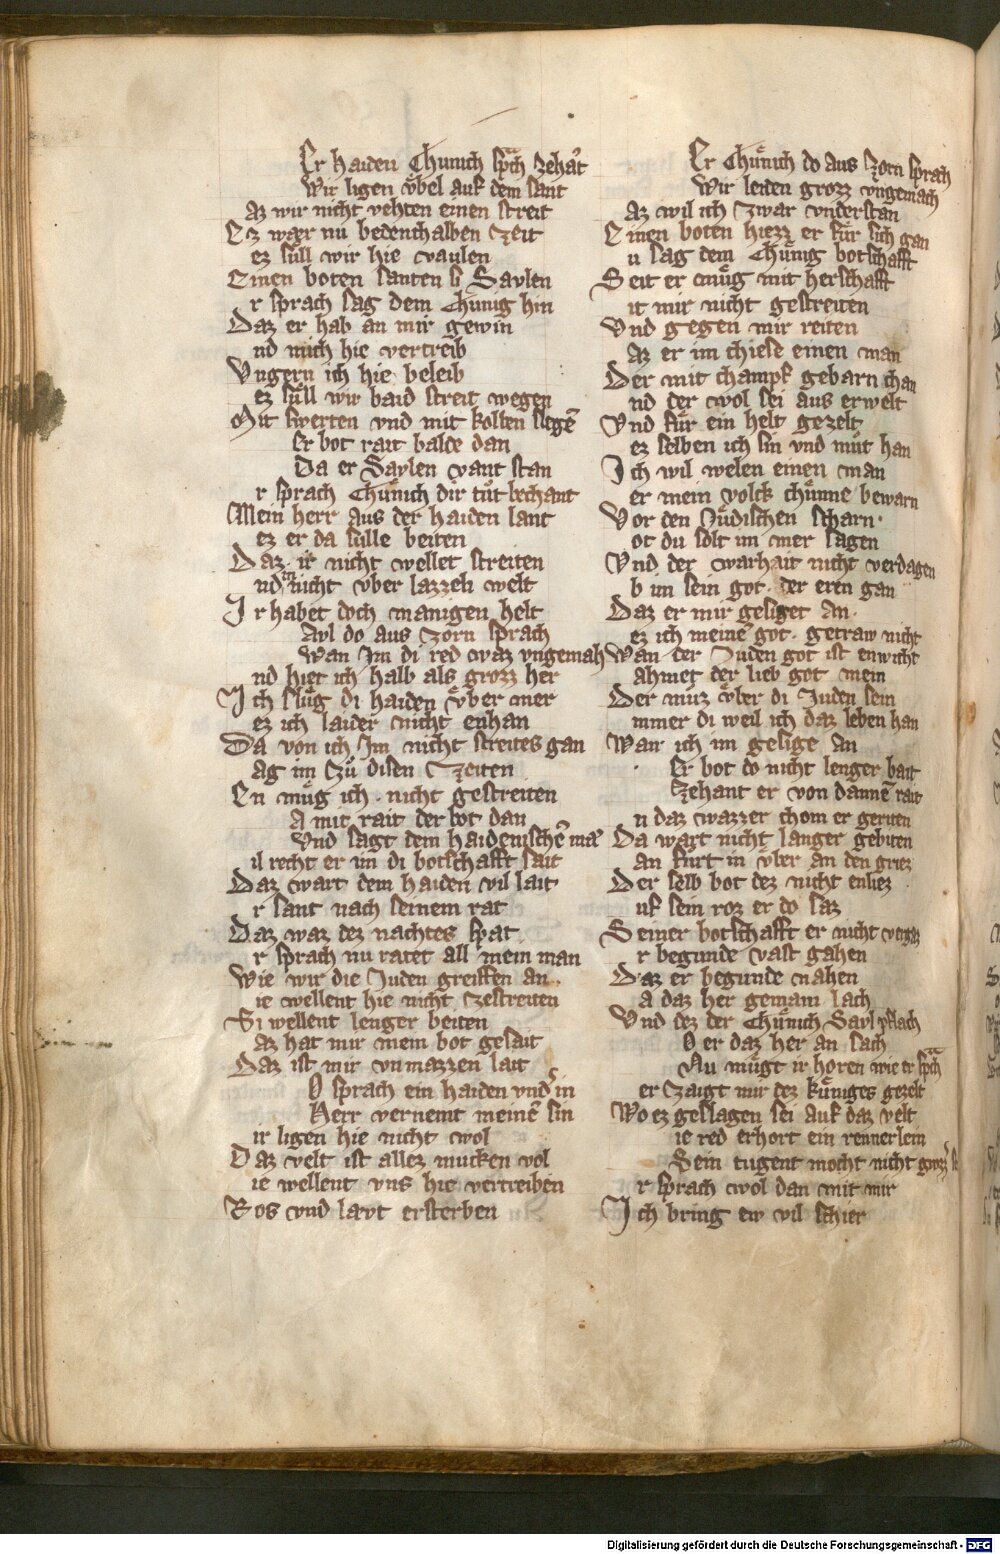 Er haiden Chunich sp̃ch zehãt
Wir ligen v̊bel auf dem sant
Az wir nicht vehten einen streit
Ez wær nu bedenthalben zeit
ez sull wir hie vaulen
Einen boten santen si Saylen
r sprach sag dem Chunig hin
Daz er hab an mir gewin
nd mich hie vertreib
Vngern ich hie beleib
ez sull wir baid streit wegen
Mit swerten vnd mit kolben slegē
Er bot rait balde dan
Da er Saylen vant stan
r sprach Chunich dir tůt bechant
Mein herr aus der haiden lant
ez er da sulle beiten
Daz ir nicht wellet streiten
nd in nicht vber lazzen welt
Ir habet doch manigen helt
Ayl do aus zorn sprach
Wan Im di red waz vngemah
nd hiet ich halb als grozz her
Ich slůg di haiden v̊ber mer
ez ich laider nicht enhan
Da von ich Im nicht streites gan
ag im zů disen zeiten
En můg ich nicht gestreiten
A mit rait der bot dan
Vnd sagt dem haidenischē mã
il recht er im di botschafft sait
Daz wart dem haiden vil lait
r sant nach seinem rat
Daz waz dez nachtes spat
r sprach nu ratet all mein man
Wie wir die Juden greiffen an
ie wellent hie nicht zestreiten
Si wellent lenger beiten
az hat mir mein bot gesait
Daz ist mir vnmazzen lait
O sprach ein haiden vnder in
Herr vernemt meinē sin
ir ligen hie nicht wol
Daz velt ist allez mucken vol
ie wellent vns hie vertreiben
Ros vnd lævt ersterben
Er Chůnich do aus zorn sprach
Wir leiden grozz vngemach
Az wil ich zwar vnderstan
Einen boten hiezz er fůr sich gan
u sag dem Chůnig botschafft
Seit er můg mit herschafft
it mir nicht gestreiten
Vnd gegen mir reiten
az er im chiese einen man
Der mit champf gebarn chan
nd der wol sei aus erwelt
Vnd fůr ein helt gezelt
ez selben ich sin vnd můt han
Ich wil welen einen man
er mein volck chůnne bewarn
Vor den Jůdischen scharn
ot du solt im mer sagen
Vnd der warhait nicht verdagen
b im sein got der eren gan
Daz er mir gesiget an
ez ich meinē got getraw nicht
Wan der Juden got ist enwicht
ahmet der lieb got mein
Der můz v̊ber di Juden sein
mmer di weil ich daz leben han
Wan ich im gesige an
Er bot do nicht lenger bait
Zehant er von dannē rait
n daz wazzer chom er geriten
Da wart nicht langer gebiten
an fůrt in v̊ber an den griez
Der selb bot dez nicht enliez
uf sein roz er do saz
Seiner botschafft er nicht vergaz
r begunde vast gahen
Daz er begunde nahen
a daz her gemain lach
Vnd dez der Chůnich Sayl pflach
O er daz her an sach
Nu můgt ir horen wie er sp̃ch
er zaigt mir dez kůniges gezelt
Wo ez geslagen sei auf daz velt
ie red erhort ein rennerlein
Sein tugent mocht nicht
r sprach wol dan mit mir
Ich bring ew vil schier
Digitalisierung gefördert durch die Deutsche Forschungsgemeinschaft - DFG